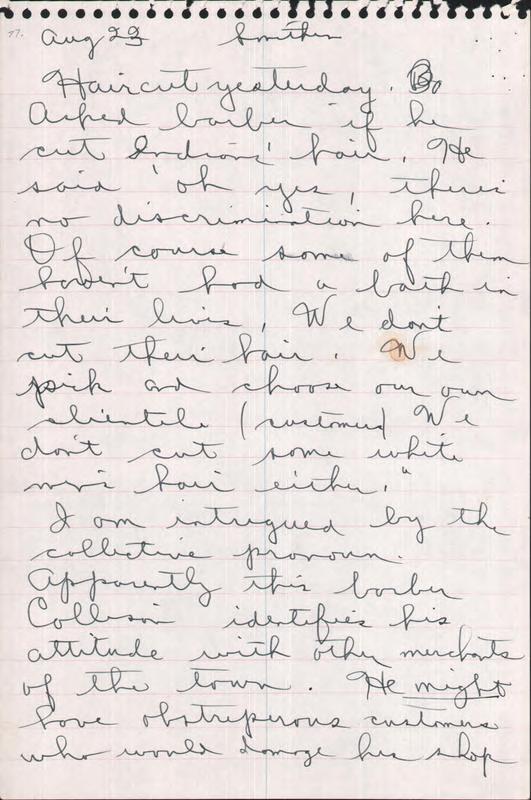 77.
Aug 23 Smithers
Haircut yesterday.
Asked barber if he
cut Indians' hair. He
said "oh yes, there's
no discrimination here.
Of course some of them
haven't had a bath in
their lives, We don't
cut their hair. We
pick and choose our own
clientele (customers) We
don't cut some white
men's hair either."
I am intrigued by the
collective pronoun.
Apparently this barber
Collison identifies his
attitude with other merchants
of the town. He might
have obstreperous customers
who would damage his shop